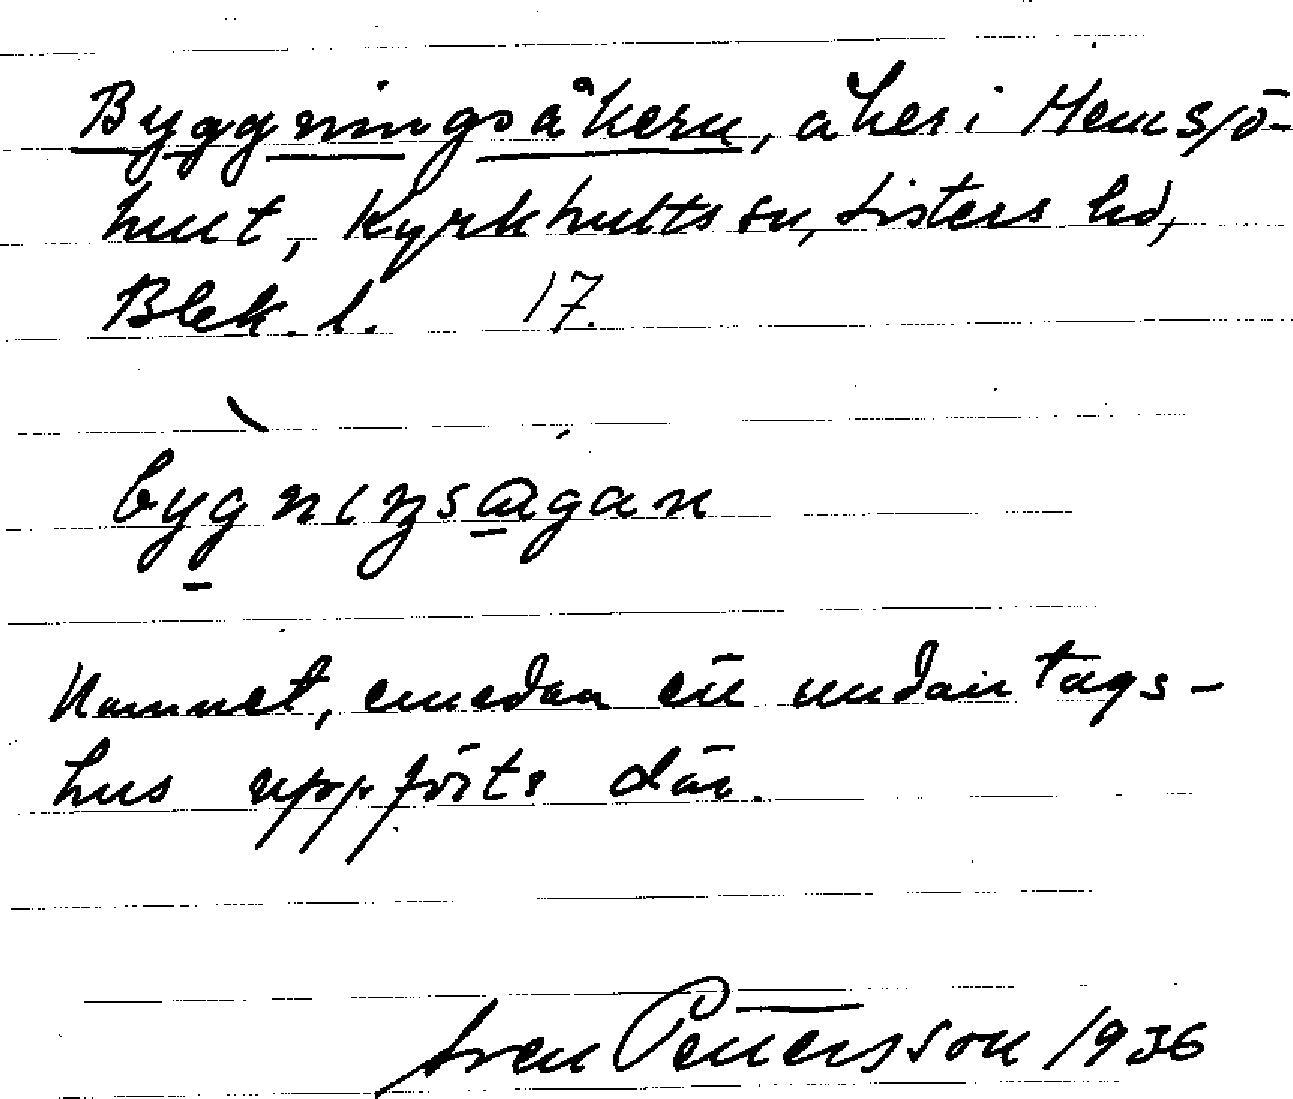 Byggningsåkern, åker i Hemsjö-
hult, Kyrkhults sn, Listers hd,
Blek. l. 17.
bygnıŋsågan
Namnet, emedan ett undantags-
hus uppförts där.
Sven Pettersson 1936